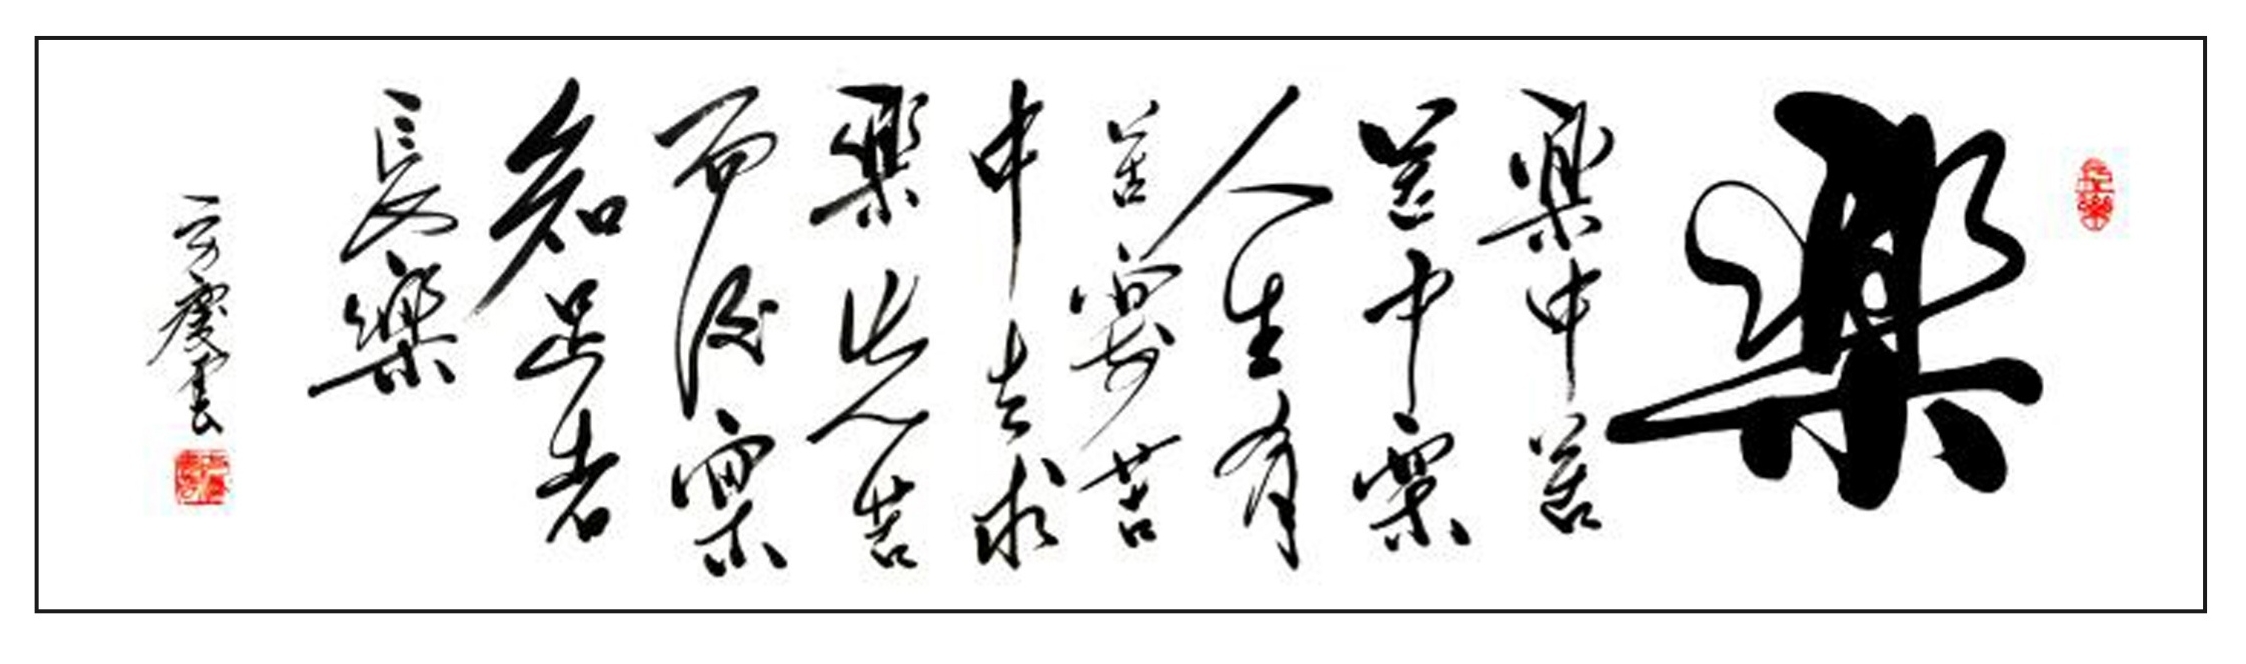 樂
樂中苦
苦中樂
人生有
苦要苦
中去求
樂先苦
而後樂
知足者
長樂
慶雲